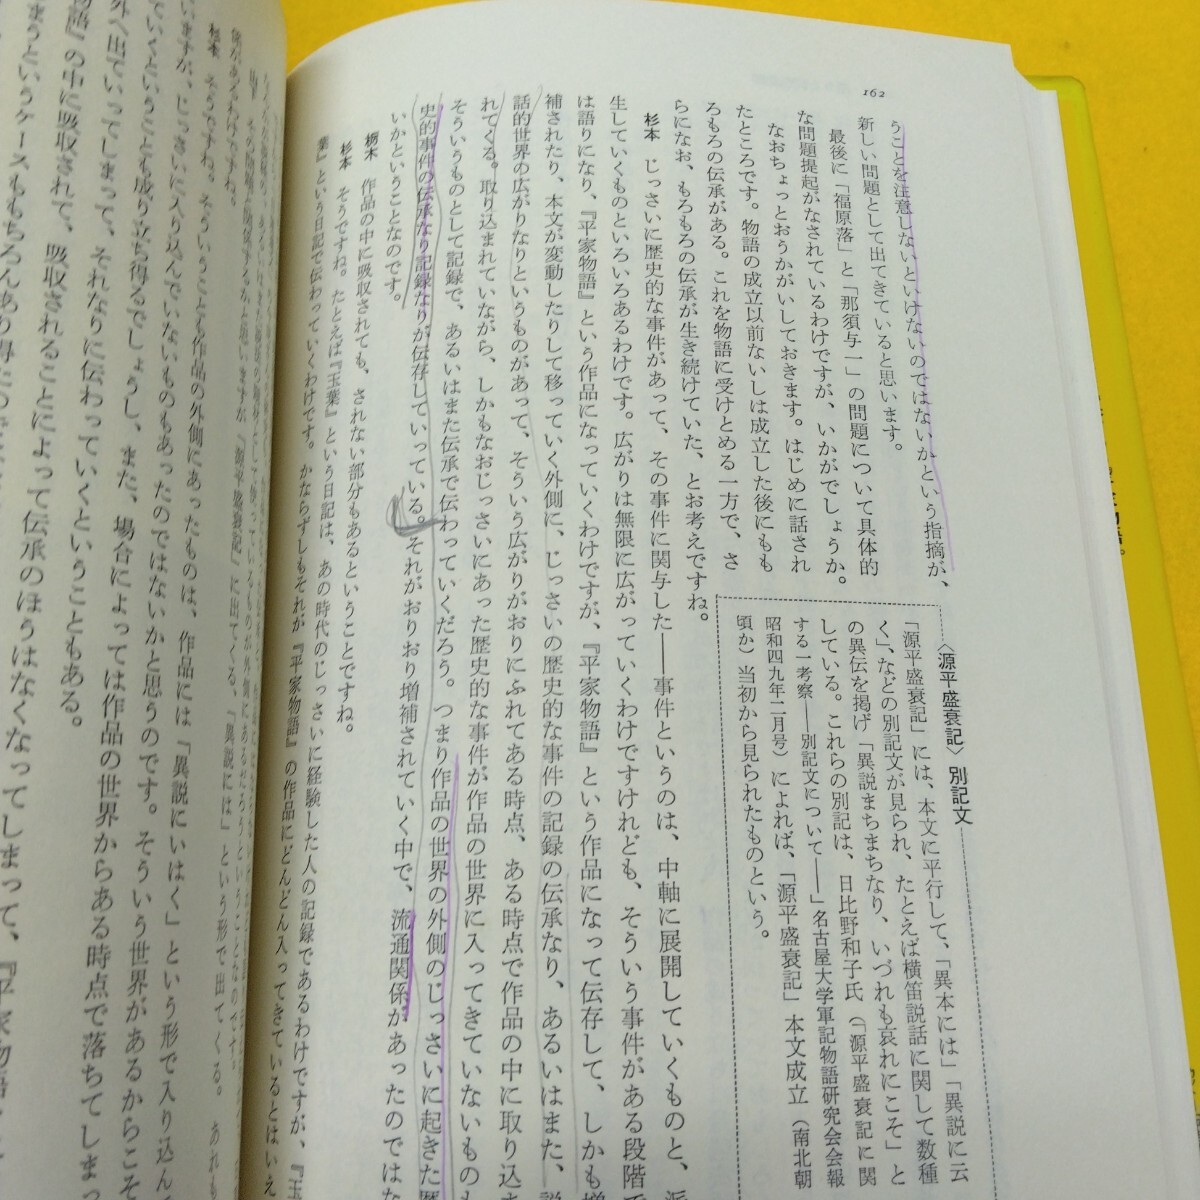 162
うことを注意しないといけないのではないかという指摘が、
新しい問題として出てきていると思います。
最後に「福原落」と「那須与一」の問題について具体的
な問題提起がなされているわけですが、いかがでしょうか。
なおちょっとおうかがいしておきます。はじめに話され
たところです。物語の成立以前ないしは成立した後にもも
ろもろの伝承がある。これを物語に受けとめる一方で、さ
らになお、もろもろの伝承が生き続けていた、とお考えですね。
〈源平盛衰記〉別記文
「源平盛衰記」には、本文に平行して、「異本には」「異説に云
く」、などの別記文が見られ、たとえば横笛説話に関して数種
の異伝を掲げ「異説まちまちなり、いづれも哀れにこそ」と
している。これらの別記は、日比野和子氏(「源平盛衰記に関
する一考察――別記文について――」名古屋大学軍記物語研究会会報
昭和四九年二月号)によれば、「源平盛衰記」本文成立(南北朝
頃か)当初から見られたものという。
杉本 じっさいに歴史的な事件があって、その事件に関与した――事件というのは、中軸に展開していくものと、派
生していくものといろいろあるわけです。広がりは無限に広がっていくわけですけれども、そういう事件がある段階で
は語りになり、『平家物語』という作品になっていくわけですが、『平家物語』という作品になって伝存して、しかも増
補されたり、本文が変動したりして移っていく外側に、じっさいの歴史的な事件の記録の伝承なり、あるいはまた、説
話的世界の広がりなりというものがあって、そういう広がりがおりにふれてある時点、ある時点で作品の中に取り込ま
れてくる。取り込まれていながら、しかもなおじっさいにあった歴史的な事件が作品の世界に入ってきていないものも
そういうものとして記録で、あるいはまた伝承で伝わっていくだろう。つまり作品の世界の外側のじっさいに起きた歴
史的事件の伝承なり記録なりが伝存していっている。それがおりおり増補されていく中で、流通関係があったのではな
いかということなのです。
栃木 作品の中に吸収されても、されない部分もあるということですね。
杉本 そうですね。たとえば『玉葉』という日記は、あの時代のじっさいに経験した人の記録であるわけですが、『玉
葉』という日記で伝わっていくわけです。かならずしもそれが『平家物語』の作品にどんどん入ってきているとはいえ
杉本 そうですね。そういうことも作品の外側にあったものは、作品には「異説にいはく」という形で入り込んで
いますが、じっさいに入り込んでいないものもあったのではないかと思うのです。そういう世界があるからこそ
ていくということも成り立ち得るでしょうし、また、場合によっては作品の世界からある時点で落ちてしまっ
外へ出ていってしまって、それなりに伝わっていくということもある。
物語』の中に吸収されて、吸収されることによって伝承のほうはなくなってしまって、『平家物語
まうというケースももちろんあり得た